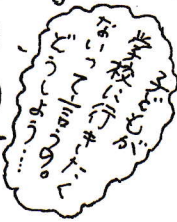 子どもが
学校に行きたく
ないって言うの。
どうしよう…